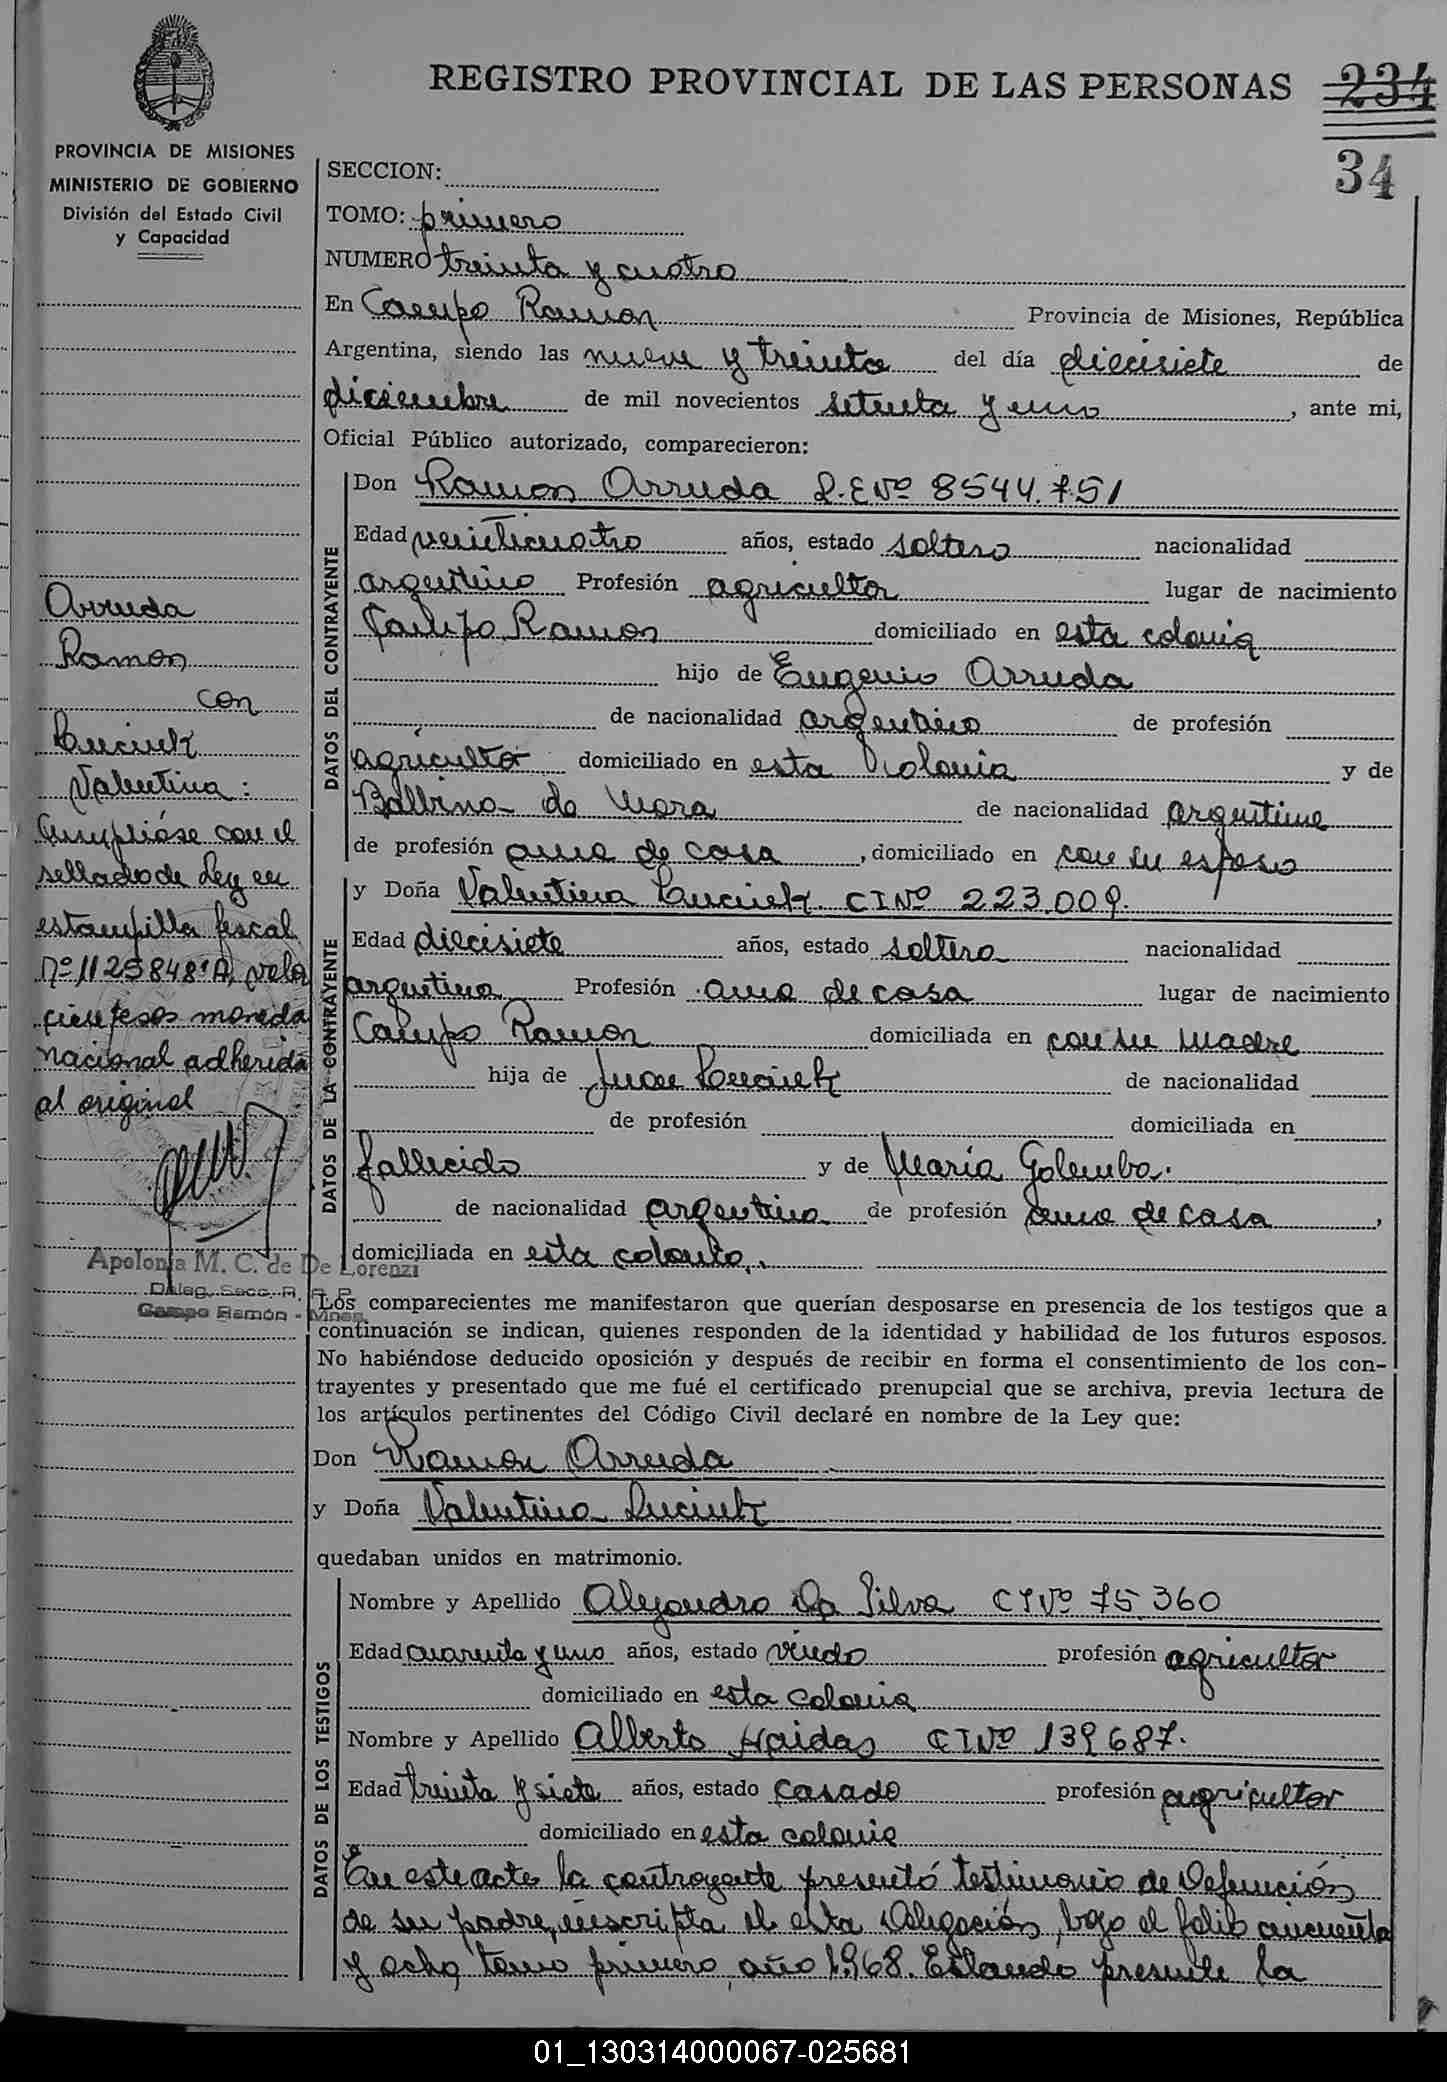 REGISTRO PROVINCIAL DE LAS PERSONAS
234
34
PROVINCIA DE MISIONES
MINISTERIO DE GOBIERNO
División del Estado Civil
y Capacidad
SECCION:
TOMO: primero
NUMERO treinta y cuatro
En Campo Ramon Provincia de Misiones, República
Argentina, siendo las nueve y treinta del día diecisiete de
diciembre de mil novecientos setenta y uno, ante mi,
Oficial Público autorizado, comparecieron:
DATOS DEL CONTRAYENTE
Don Ramon Arruda L.E Nº 8544.751
Edad veinticuatro años, estado soltero nacionalidad
argentino Profesión agricultor lugar de nacimiento
Campo Ramon domiciliado en esta colonia
hijo de Eugenio Arruda
de nacionalidad argentino de profesión
agricultor domiciliado en esta colonia y de
Balbina de Mora de nacionalidad argentina
de profesión ama de casa, domiciliado en con su esposo
DATOS DE LA CONTRAYENTE
y Doña Valentina Luciuk CI Nº 223.009.
Edad diecisiete años, estado soltera nacionalidad
argentina Profesión ama de casa lugar de nacimiento
Campo Ramon domiciliada en con su madre
hija de Juan Luciuk de nacionalidad
de profesión domiciliada en
fallecido y de Maria Golemba.
de nacionalidad argentina de profesión ama de casa,
domiciliada en esta colonia.
Arruda
Ramon
con
Luciuk
Valentina:
Cumplióse con el
sellado de Ley en
estampilla fiscal
Nº 1125848 A, valor
cien pesos moneda
nacional adherida
al original
Apolonia M. C. de De Lorenzi
Deleg. Secc. R. P.
Campo Ramón - Mnes.
Los comparecientes me manifestaron que querían desposarse en presencia de los testigos que a
continuación se indican, quienes responden de la identidad y habilidad de los futuros esposos.
No habiéndose deducido oposición y después de recibir en forma el consentimiento de los con-
trayentes y presentado que me fué el certificado prenupcial que se archiva, previa lectura de
los artículos pertinentes del Código Civil declaré en nombre de la Ley que:
Don Ramon Arruda
y Doña Valentina Luciuk
quedaban unidos en matrimonio.
DATOS DE LOS TESTIGOS
Nombre y Apellido Alejandro Da Silva CI Nº 75.360
Edad cuarenta y uno años, estado viudo profesión agricultor
domiciliado en esta colonia
Nombre y Apellido Alberto Haidas CI Nº 139687.
Edad treinta y siete años, estado casado profesión agricultor
domiciliado en esta colonia
En este acto la contrayente presentó testimonio de Defunción
de su padre, inscripta en esta Delegación, bajo el folio cincuenta
y ocho, tomo primero, año 1968. Estando presente la
01_130314000067-025681